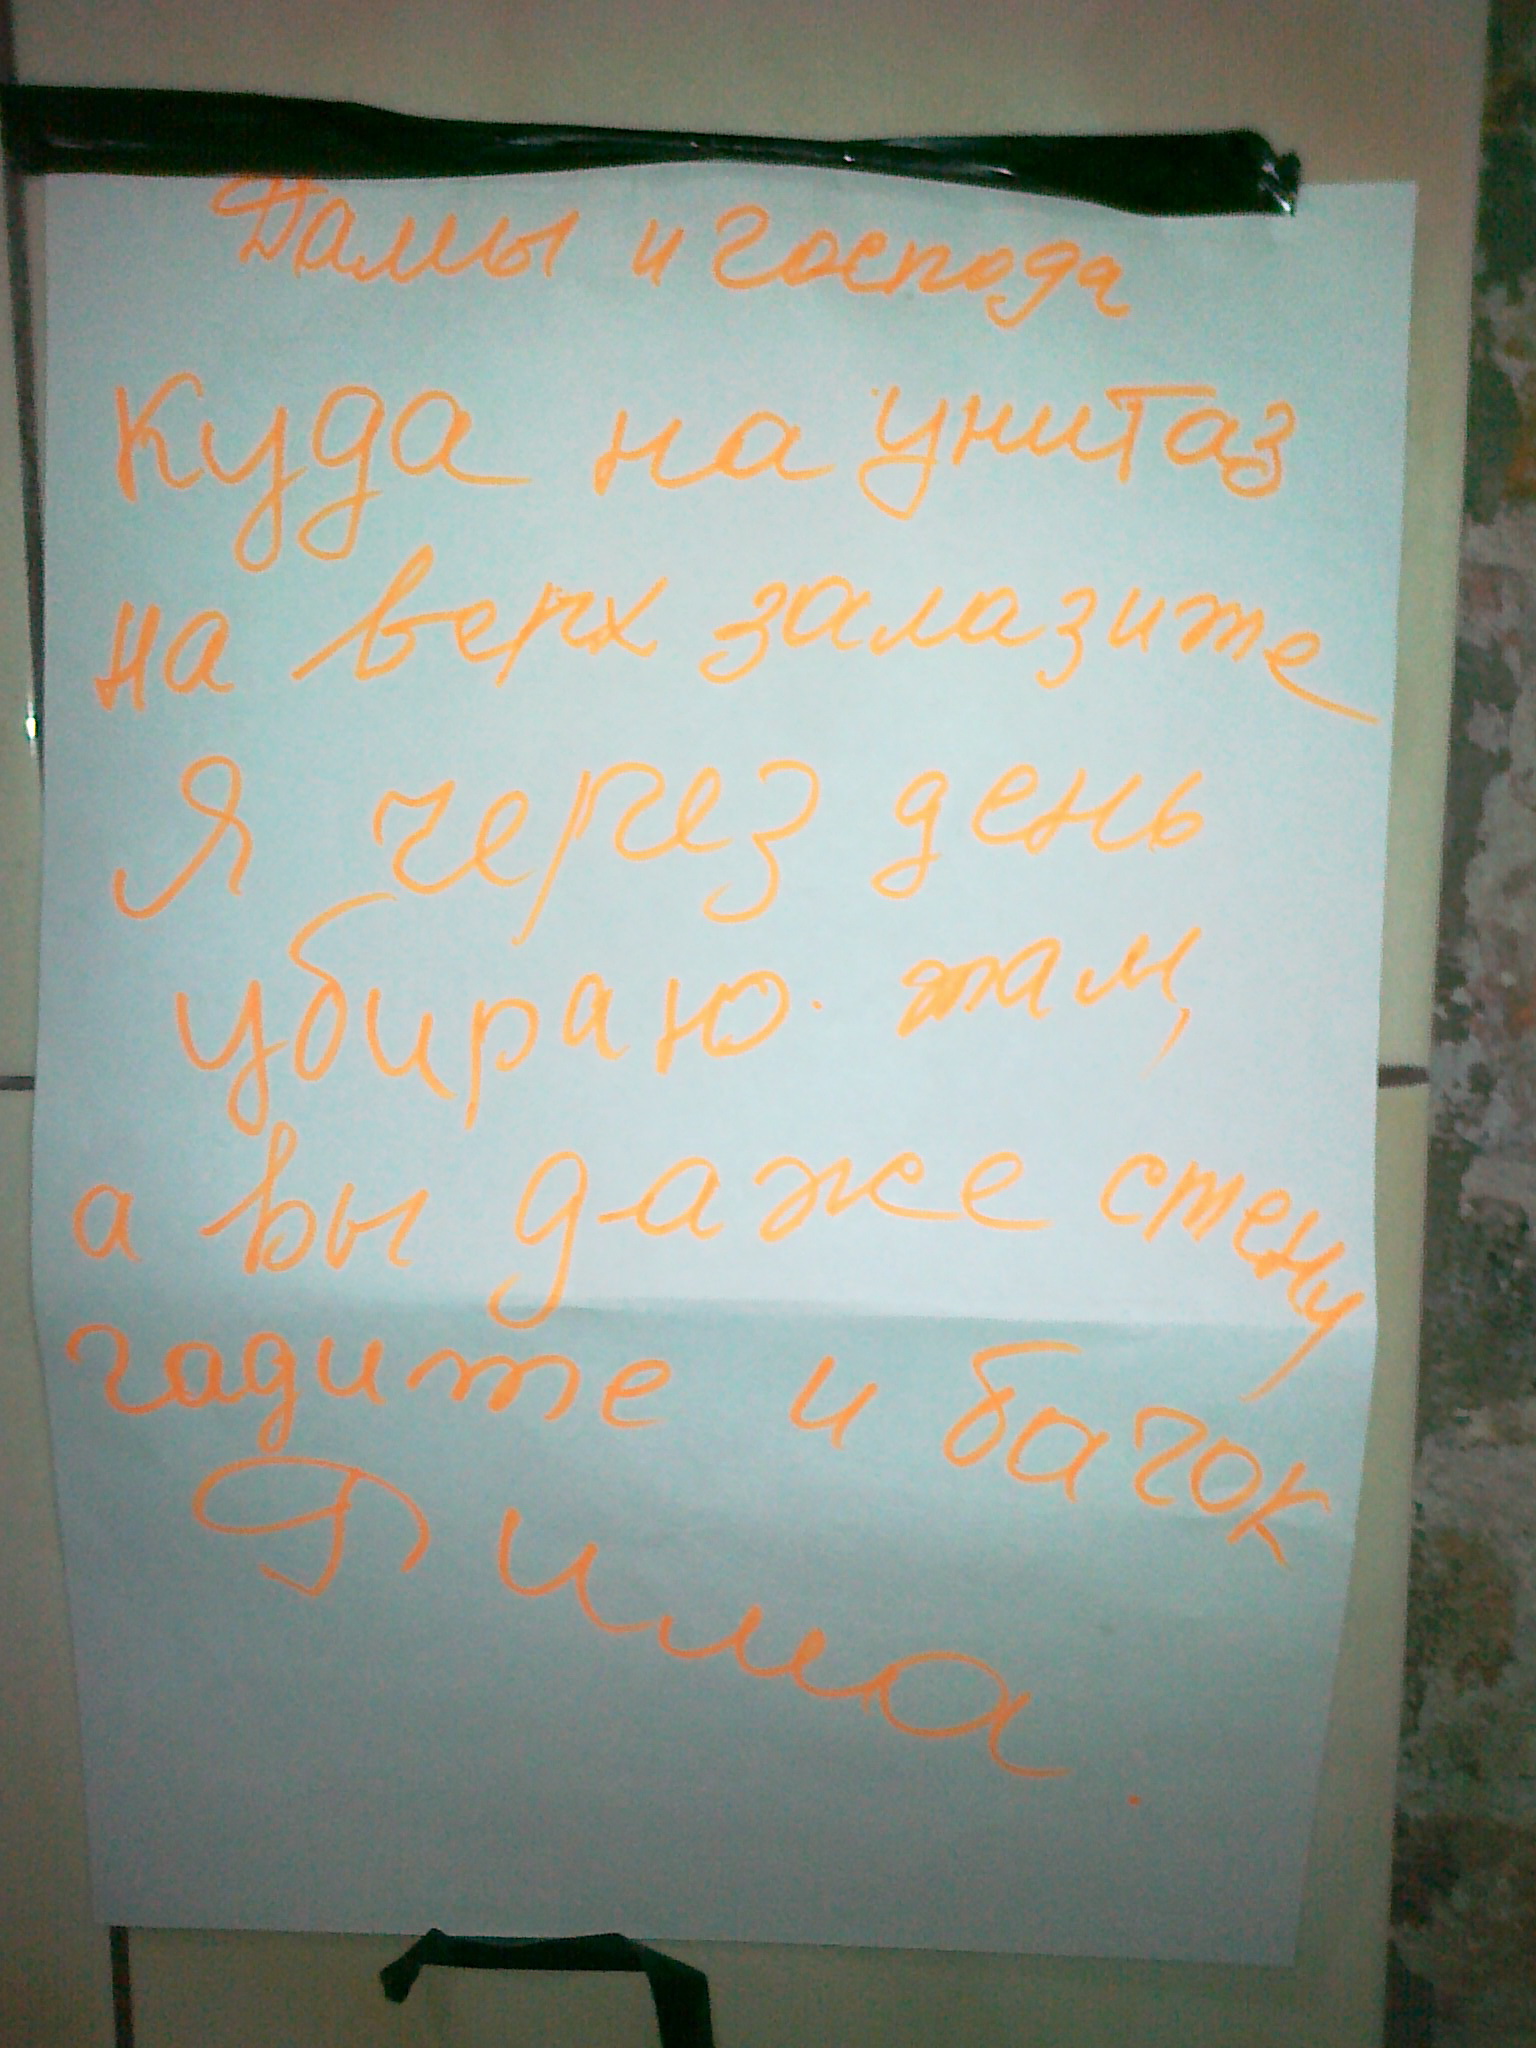 Дамы и господа
Куда на унитаз
на верх залазите
Я через день
убираю там,
а вы даже стену
гадите и бачок
Дима.